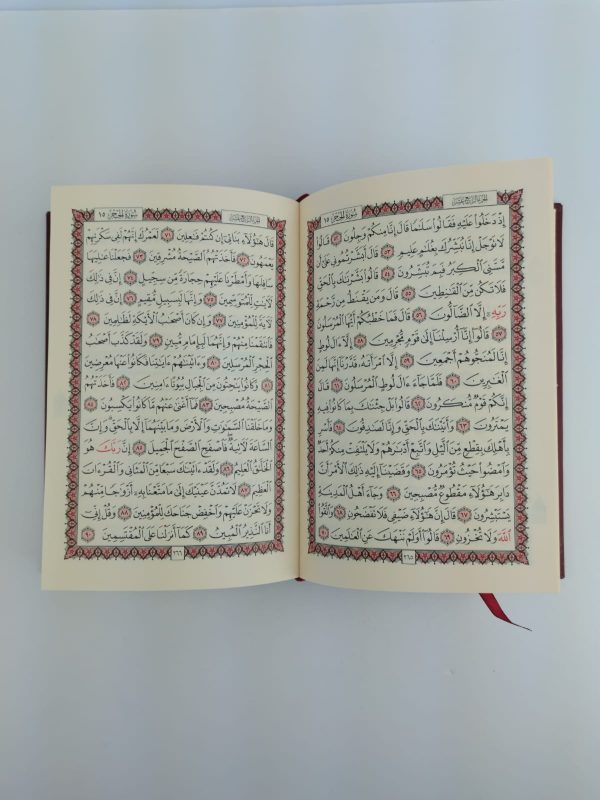 الجُزْءُ الرَّابِعَ عَشَرَ سُورَةُ الحِجْرِ ١٥
إِذْ دَخَلُواْ عَلَيْهِ فَقَالُواْ سَلَٰمًا قَالَ إِنَّا مِنكُمْ وَجِلُونَ ٥٢ قَالُواْ
لَا تَوْجَلْ إِنَّا نُبَشِّرُكَ بِغُلَٰمٍ عَلِيمٍ ٥٣ قَالَ أَبَشَّرْتُمُونِي عَلَىٰٓ أَن
مَّسَّنِيَ ٱلْكِبَرُ فَبِمَ تُبَشِّرُونَ ٥٤ قَالُواْ بَشَّرْنَٰكَ بِٱلْحَقِّ
فَلَا تَكُن مِّنَ ٱلْقَٰنِطِينَ ٥٥ قَالَ وَمَن يَقْنَطُ مِن رَّحْمَةِ
رَبِّهِۦٓ إِلَّا ٱلضَّآلُّونَ ٥٦ قَالَ فَمَا خَطْبُكُمْ أَيُّهَا ٱلْمُرْسَلُونَ
٥٧ قَالُوٓاْ إِنَّآ أُرْسِلْنَآ إِلَىٰ قَوْمٍ مُّجْرِمِينَ ٥٨ إِلَّآ ءَالَ لُوطٍ
إِنَّا لَمُنَجُّوهُمْ أَجْمَعِينَ ٥٩ إِلَّا ٱمْرَأَتَهُۥ قَدَّرْنَآ إِنَّهَا لَمِنَ
ٱلْغَٰبِرِينَ ٦٠ فَلَمَّا جَآءَ ءَالَ لُوطٍ ٱلْمُرْسَلُونَ ٦١ قَالَ
إِنَّكُمْ قَوْمٌ مُّنكَرُونَ ٦٢ قَالُواْ بَلْ جِئْنَٰكَ بِمَا كَانُواْ فِيهِ
يَمْتَرُونَ ٦٣ وَأَتَيْنَٰكَ بِٱلْحَقِّ وَإِنَّا لَصَٰدِقُونَ ٦٤ فَأَسْرِ
بِأَهْلِكَ بِقِطْعٍ مِّنَ ٱلَّيْلِ وَٱتَّبِعْ أَدْبَٰرَهُمْ وَلَا يَلْتَفِتْ مِنكُمْ أَحَدٌ
وَٱمْضُواْ حَيْثُ تُؤْمَرُونَ ٦٥ وَقَضَيْنَآ إِلَيْهِ ذَٰلِكَ ٱلْأَمْرَ أَنَّ
دَابِرَ هَٰٓؤُلَآءِ مَقْطُوعٌ مُّصْبِحِينَ ٦٦ وَجَآءَ أَهْلُ ٱلْمَدِينَةِ
يَسْتَبْشِرُونَ ٦٧ قَالَ إِنَّ هَٰٓؤُلَآءِ ضَيْفِي فَلَا تَفْضَحُونِ ٦٨ وَٱتَّقُواْ
ٱللَّهَ وَلَا تُخْزُونِ ٦٩ قَالُوٓاْ أَوَلَمْ نَنْهَكَ عَنِ ٱلْعَٰلَمِينَ ٧٠
٢٦٥
الجُزْءُ الرَّابِعَ عَشَرَ سُورَةُ الحِجْرِ ١٥
قَالَ هَٰٓؤُلَآءِ بَنَاتِيٓ إِن كُنتُمْ فَٰعِلِينَ ٧١ لَعَمْرُكَ إِنَّهُمْ لَفِي سَكْرَتِهِمْ
يَعْمَهُونَ ٧٢ فَأَخَذَتْهُمُ ٱلصَّيْحَةُ مُشْرِقِينَ ٧٣ فَجَعَلْنَا عَٰلِيَهَا
سَافِلَهَا وَأَمْطَرْنَا عَلَيْهِمْ حِجَارَةً مِّن سِجِّيلٍ ٧٤ إِنَّ فِي ذَٰلِكَ
لَأٓيَٰتٍ لِّلْمُتَوَسِّمِينَ ٧٥ وَإِنَّهَا لَبِسَبِيلٍ مُّقِيمٍ ٧٦ إِنَّ فِي ذَٰلِكَ
لَأٓيَةً لِّلْمُؤْمِنِينَ ٧٧ وَإِن كَانَ أَصْحَٰبُ ٱلْأَيْكَةِ لَظَٰلِمِينَ ٧٨
فَٱنتَقَمْنَا مِنْهُمْ وَإِنَّهُمَا لَبِإِمَامٍ مُّبِينٍ ٧٩ وَلَقَدْ كَذَّبَ أَصْحَٰبُ
ٱلْحِجْرِ ٱلْمُرْسَلِينَ ٨٠ وَءَاتَيْنَٰهُمْ ءَايَٰتِنَا فَكَانُواْ عَنْهَا مُعْرِضِينَ
٨١ وَكَانُواْ يَنْحِتُونَ مِنَ ٱلْجِبَالِ بُيُوتًا ءَامِنِينَ ٨٢ فَأَخَذَتْهُمُ
ٱلصَّيْحَةُ مُصْبِحِينَ ٨٣ فَمَآ أَغْنَىٰ عَنْهُم مَّا كَانُواْ يَكْسِبُونَ ٨٤
وَمَا خَلَقْنَا ٱلسَّمَٰوَٰتِ وَٱلْأَرْضَ وَمَا بَيْنَهُمَآ إِلَّا بِٱلْحَقِّ وَإِنَّ
ٱلسَّاعَةَ لَأٓتِيَةٌ فَٱصْفَحِ ٱلصَّفْحَ ٱلْجَمِيلَ ٨٥ إِنَّ رَبَّكَ هُوَ
ٱلْخَلَّٰقُ ٱلْعَلِيمُ ٨٦ وَلَقَدْ ءَاتَيْنَٰكَ سَبْعًا مِّنَ ٱلْمَثَانِي وَٱلْقُرْءَانَ
ٱلْعَظِيمَ ٨٧ لَا تَمُدَّنَّ عَيْنَيْكَ إِلَىٰ مَا مَتَّعْنَا بِهِۦٓ أَزْوَٰجًا مِّنْهُمْ
وَلَا تَحْزَنْ عَلَيْهِمْ وَٱخْفِضْ جَنَاحَكَ لِلْمُؤْمِنِينَ ٨٨ وَقُلْ إِنِّيٓ
أَنَا ٱلنَّذِيرُ ٱلْمُبِينُ ٨٩ كَمَآ أَنزَلْنَا عَلَى ٱلْمُقْتَسِمِينَ ٩٠
٢٦٦